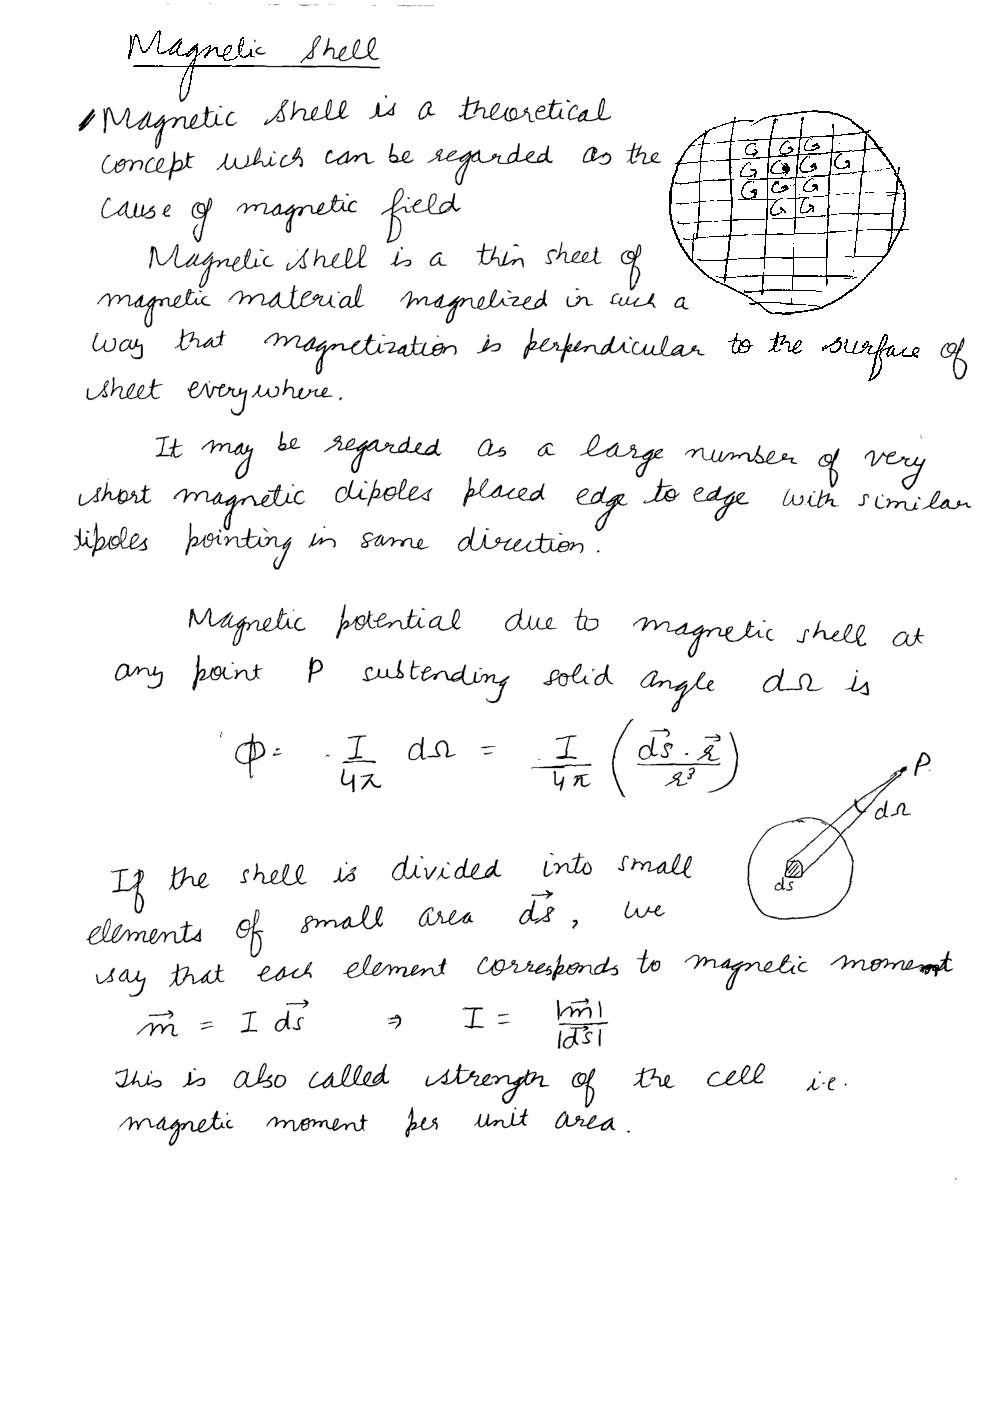 Magnetic Shell
Magnetic Shell is a theoretical
concept which can be regarded as the
cause of magnetic field
Magnetic shell is a thin sheet of
magnetic material magnetized in such a
way that magnetization is perpendicular to the surface of
sheet everywhere.
It may be regarded as a large number of very
short magnetic dipoles placed edge to edge with similar
dipoles pointing in same direction.
Magnetic potential due to magnetic shell at
any point P subtending solid angle dΩ is
Φ = I/4π dΩ = I/4π (d⃗s · r⃗ / r³)
P
dΩ
ds
If the shell is divided into small
elements of small area d⃗s, we
say that each element corresponds to magnetic moment
m⃗ = I d⃗s ⇒ I = |m⃗|/|d⃗s|
This is also called strength of the cell i.e.
magnetic moment per unit area.